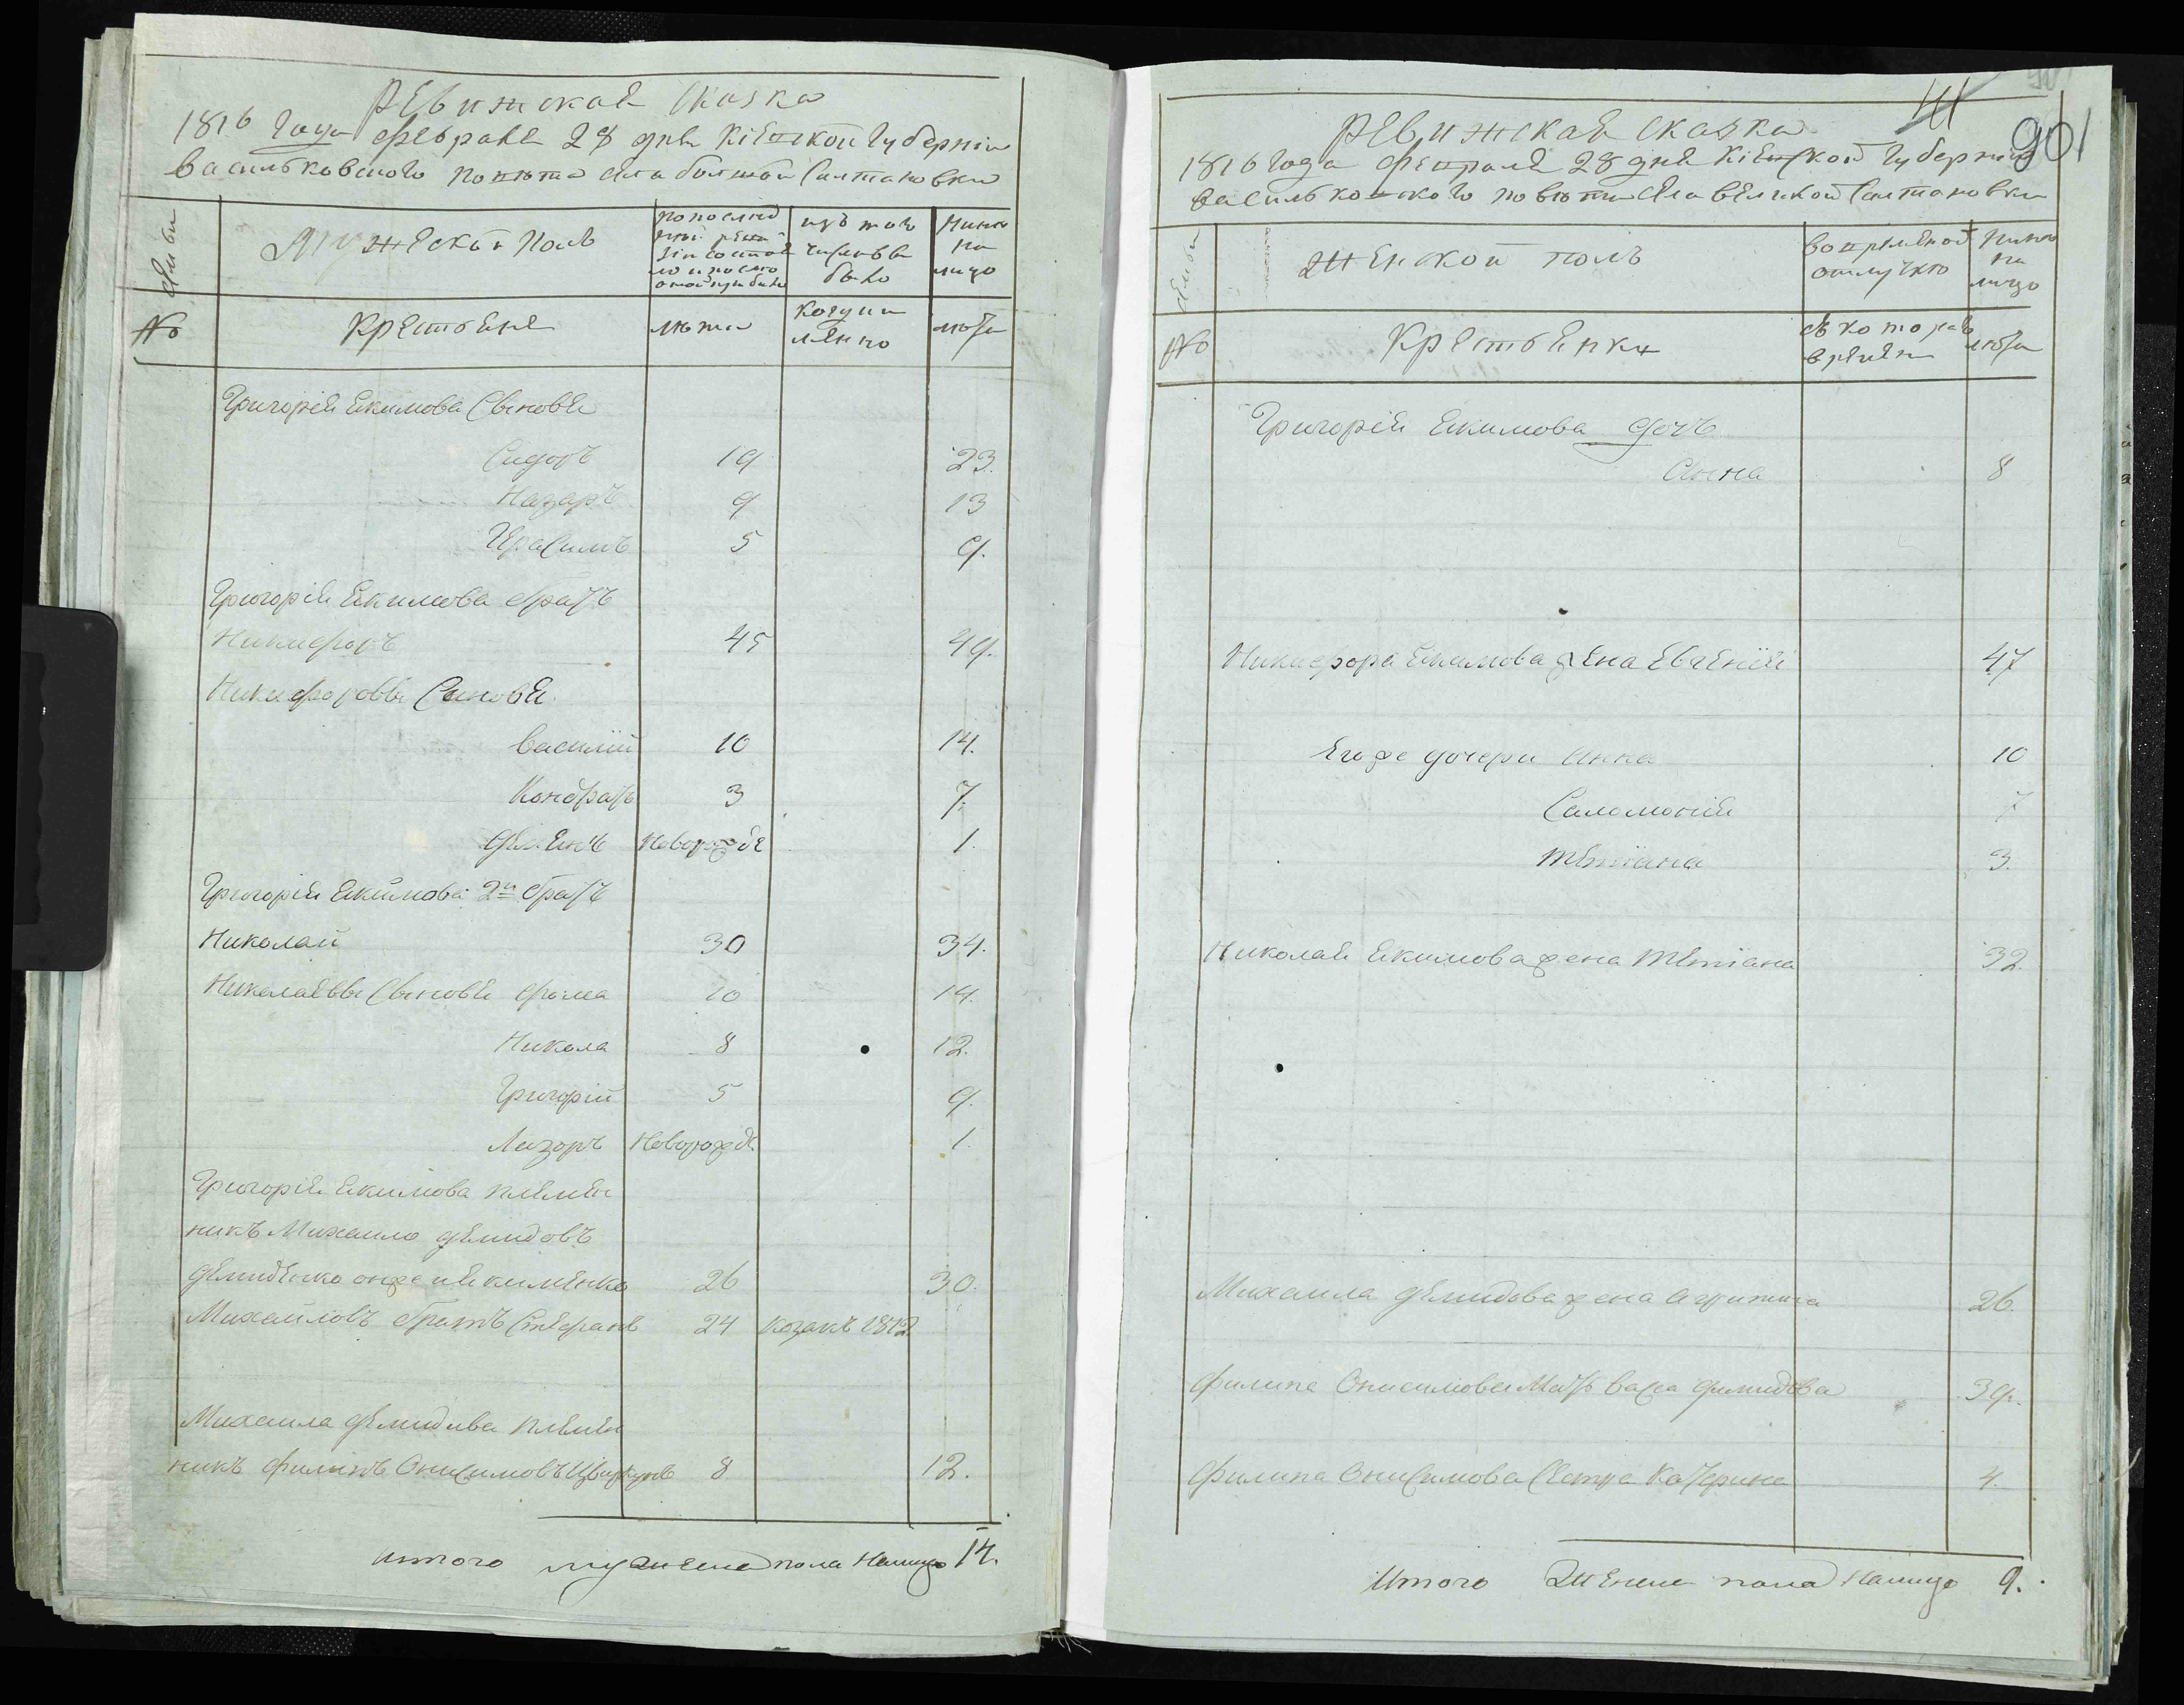 Ревижская Сказка
1816 Года февраля 28 дня Кіевской Губерніи
Васильковского повета села большой Салтановки
Семьи
Мужеской Полъ
по послед
ней реви
зіи состоя
ло и после
оной прибыло
изъ того
числа вы
было
Ныне
на
лицо
№
Крестьяне
лета
когда и
менно
лета
Григорія Екимова Сыновя
Сидоръ 19 23.
Назаръ 9 13
Герасимъ 5 9.
Григорія Екимова братъ
Никифоръ 45 49.
Никифоровы Сыновя
Василій 10 14.
Кондратъ 3 7.
Новорожде 1.
Григорія Екимова 2й братъ
Николай 30 34.
Николаевы Сыновя Фома 10 14.
Никола 8 12.
Григорій 5 9.
Лазоръ Новорожде 1.
Григорія Екимова племен
никъ Михаило Демидовъ
Демиденко онже и Екименко 26 30.
Михайловъ братъ Стефанъ 24 козакъ 1812
Михаила Демидова племен
никъ Филипъ Онисимовъ 8 12.
Итого мужеска пола Налицо 14.
90
Ревижская Сказка
1816 Года февраля 28 дня Кіевской Губерніи
Васильковского повета Села Великой Салтановки
Семьи
Женской полъ
во временой
отлучке
Ныне
на
лицо
№
Крестьянки
съ которого
времени
лета
Григорія Екимова дочь
Анна 8
Никифора Екимова жена Евгенія 47
Егоже дочери Анна 10
Саломонія 7
Тетіана 3.
Николая Екимова жена Тетіана 32.
Михаила Демидова жена Агрипина 26.
Филипа Онисимова Мать Васа Демидова 39.
Филипа Онисимова Сестра Катерина 4.
Итого Женска пола Налицо 9.